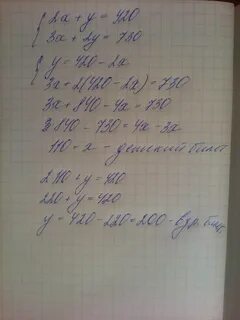 2a + y = 420
3a + 2y = 730
y = 420 - 2a
3a + 2(420 - 2a) = 730
3a + 840 - 4a = 730
840 - 730 = 4a - 3a
110 = a - детский билет
2·110 + y = 420
220 + y = 420
y = 420 - 220 = 200 - взр. билет